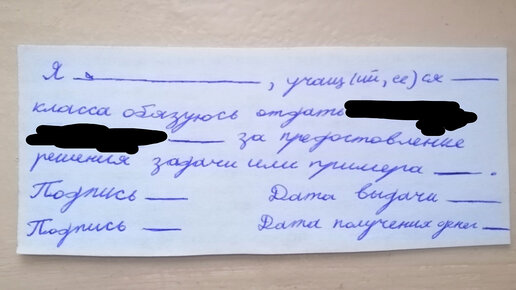 Я ___________, учащ(ий, ее)ся ___
класса обязуюсь отдать
___ за предоставление
решения задачи или примера ___.
Подпись ___ Дата выдачи ___
Подпись ___ Дата получения денег ___